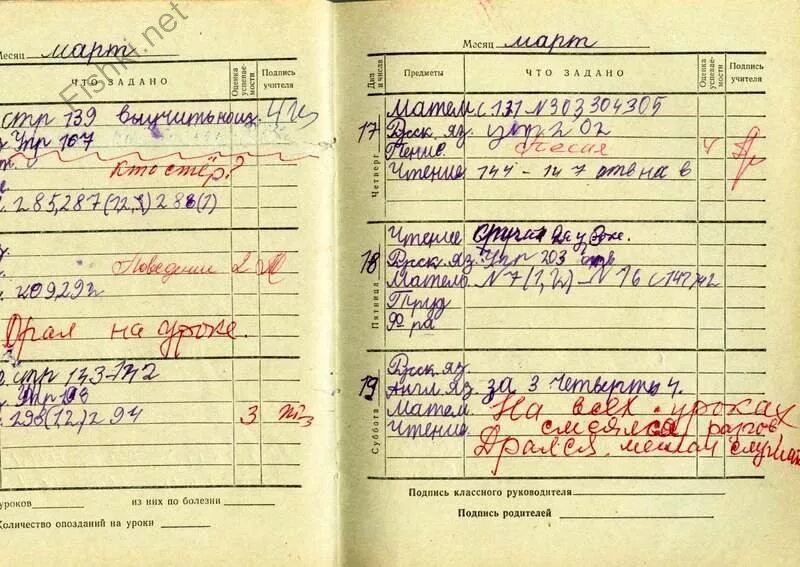 Fishki.net
Месяц март
ЧТО ЗАДАНО Оценка успеваемости Подпись учителя
стр 139 выучить
Упр 167
Кто стёр?
285,287(12,3) 288(1)
Поведение 2
209,292
Орал на уроке.
стр 143-142
Упр
293(12) 294 3
уроков из них по болезни
Количество опозданий на уроки
Месяц март
Дни и числа Предметы ЧТО ЗАДАНО Оценка успеваемости Подпись учителя
17 Четверг
Матем с 131 N303 304 305
Русск. яз. упр 202
Пение. Песня 4
Чтение 144 - 147 отв на в
18 Пятница
Чтение
Русск. яз. Упр 203
Матем N7(1,2) - N 16 с 147
Труд
Ф ра
19 Суббота
Русск. яз.
Англ. яз за 3 четверть 4.
Матем. На всех уроках
Чтение смеялся
Дрался, мешал
Подпись классного руководителя
Подпись родителей